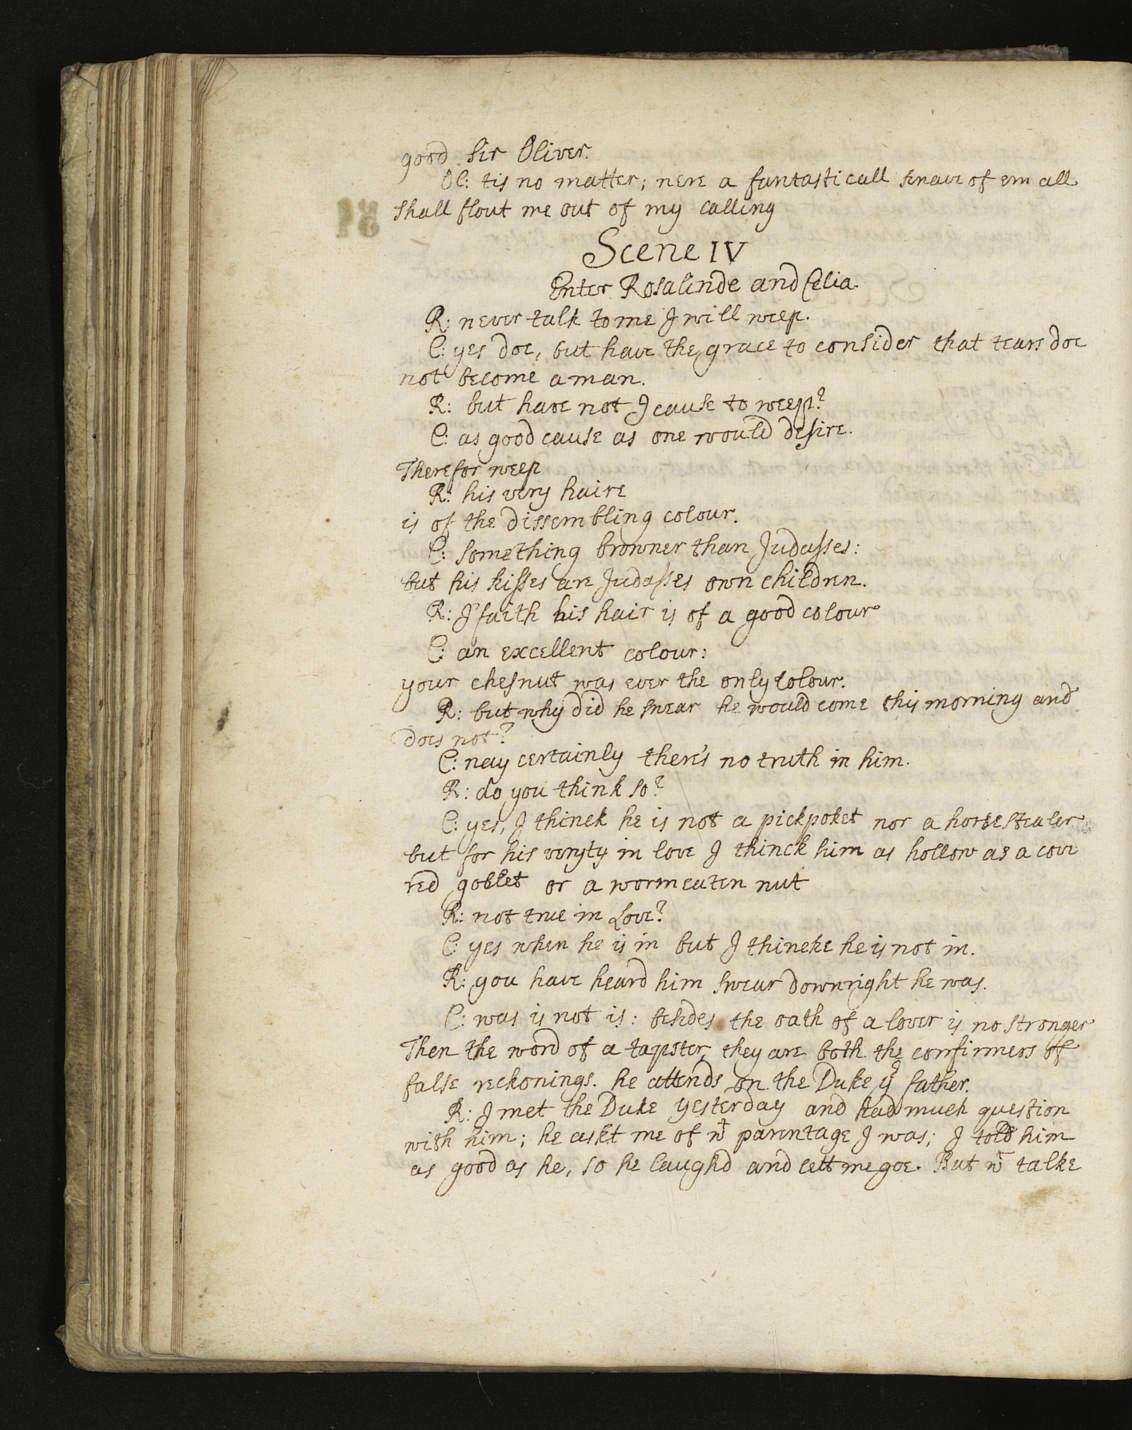 good Sir Oliver.
Ol: tis no matter; nere a fantasticall knave of em all
shall flout me out of my calling
Scene IV
Enter Rosalinde and Celia.
R: never talk to me J will weep.
C: yes doe, but have the grace to consider that tears doe
not become a man.
R: but have not J cause to weep?
C: as good cause as one would desire.
Therefor weep
R: his very haire
is of the dissembling colour.
C: something browner than Judasses:
but his kisses are Judasses own children.
R: J'faith his hair is of a good colour
C: an excellent colour:
your chesnut was ever the only colour.
R: but why did he swear he would come this morning and
does not?
C: nay certainly there's no truth in him.
R: do you think so?
C: yes, J thinck he is not a pickpoket nor a horse stealer
but for his verity in love J thinck him as hollow as a cove
red goblet or a wormeaten nut
R: not true in Love?
C: yes when he is in but J thincke he is not in.
R: you have heard him swear downright he was.
C: was is not is: besides the oath of a lover is no stronger
Then the word of a tapster, they are both the confirmers of
false reckonings. he attends on the Duke yr father.
R: J met the Duke yesterday and had much question
with him; he askt me of wt parentage J was; J told him
as good as he, so he laughd and lett me goe. But wt talke